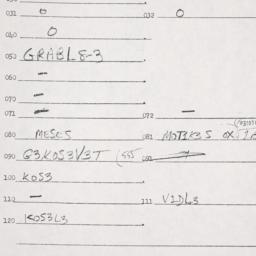 031 0 032 0
040 0
050 GRABL8-3
060 -
070 -
071 - 072 -
080 MESES 081 MOTIKES
090 G3KOS3V3T 091
100 KOS3
110 - 111 VIDL3
120 KOS3L3